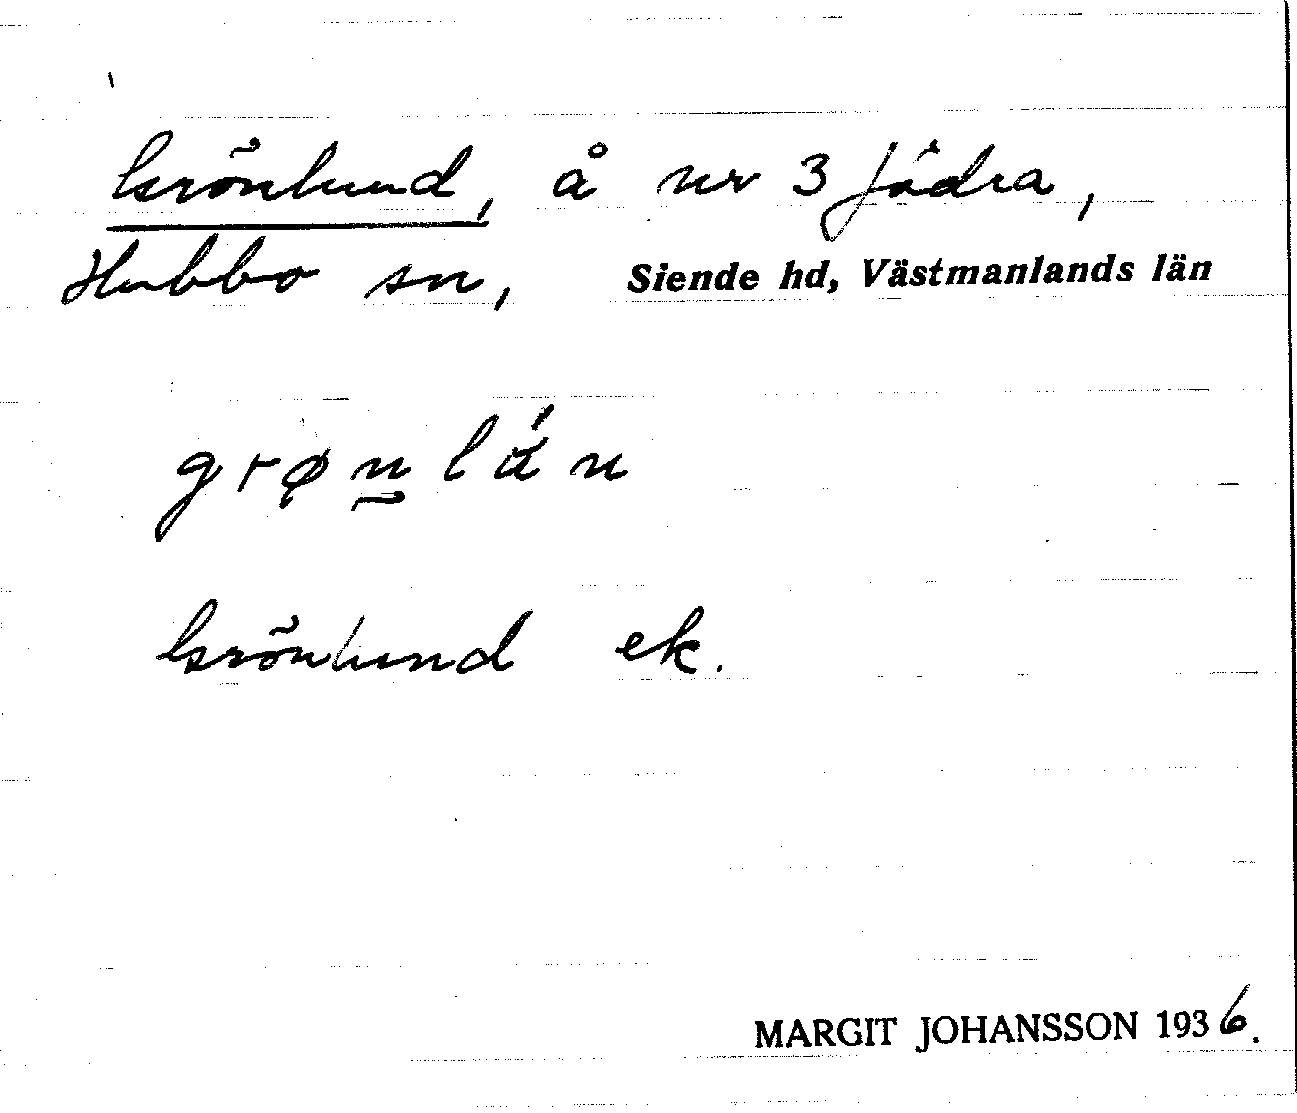 Grönlund, å nr 3 Jädra,
Hubbo sn, Siende hd, Västmanlands län
grøn̠lán
Grönlund ek.
MARGIT JOHANSSON 1936.